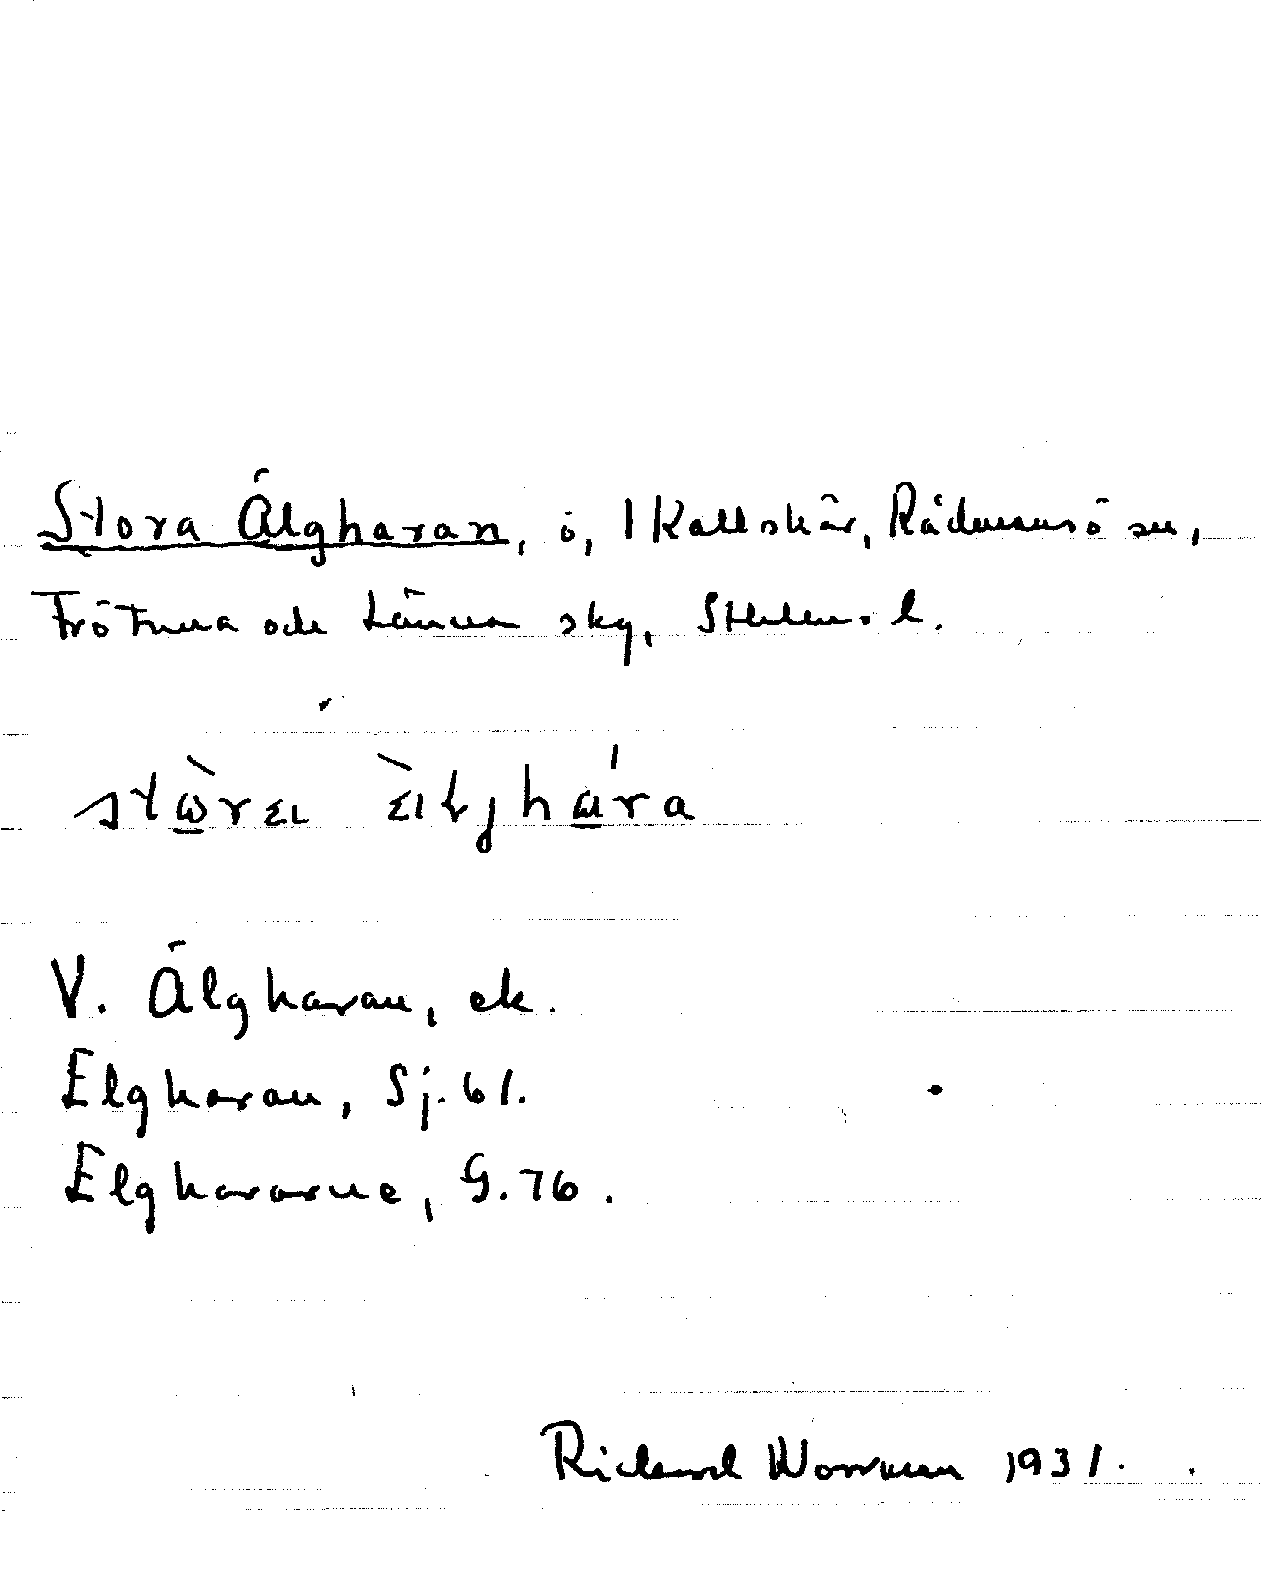 Stora Älgharan, ö, 1 Kallskär, Rådmansö sn,
Frötuna och Länna sky, Sthlms l.
V. Älgharan, ek.
Elgharan, Sj. 61.
Elghararne, G. 76.
Richard Worrman 1931.